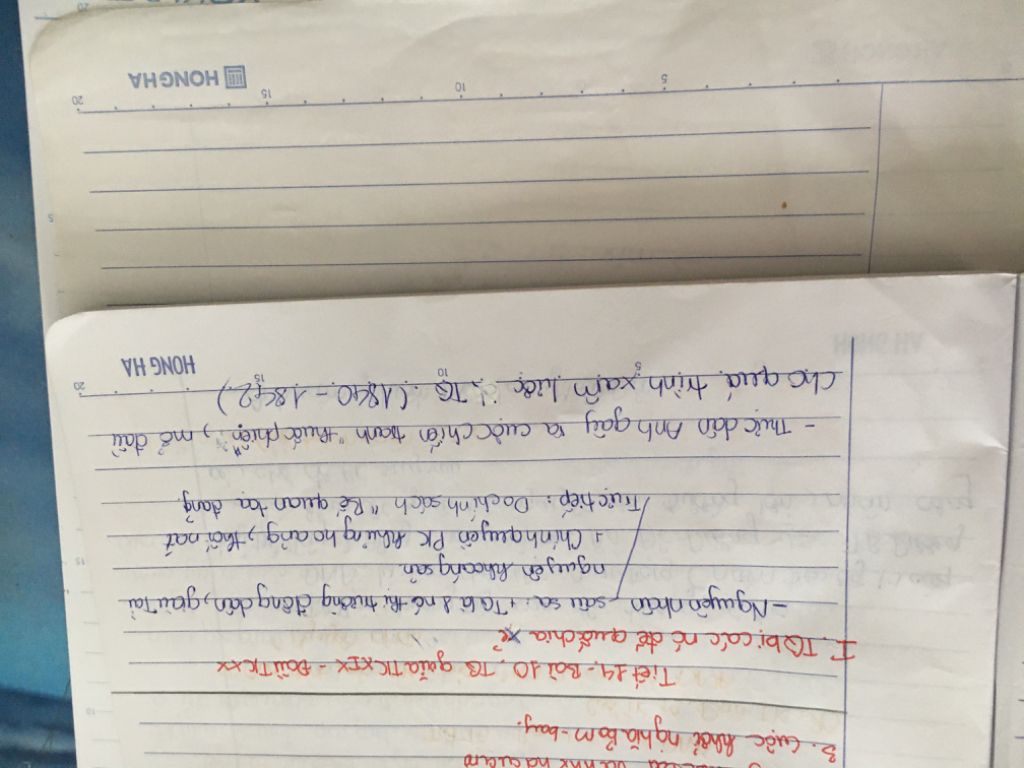 3. Cuộc khởi nghĩa Bom-bay.
Tiết 14 - Bài 10. TQ giữa TK XIX - Đầu TK XX
I. TQ bị các nc đế quốc chia xẻ
- Nguyên nhân - sâu xa: + TQ là 1 nc thị trường đông dân, giàu Tài
nguyên khoáng sản
+ Chính quyền PK khủng hoảng, thối nát
Trực tiếp: Do chính sách "Bế quan tỏa
- Thực dân Anh gây ra cuộc chiến tranh "thuốc phiện", mở đầu
cho quá trình xâm lược TQ (1840 - 1842)
5 10 15 20
HONG HA
5 10 15 20
HONG HA